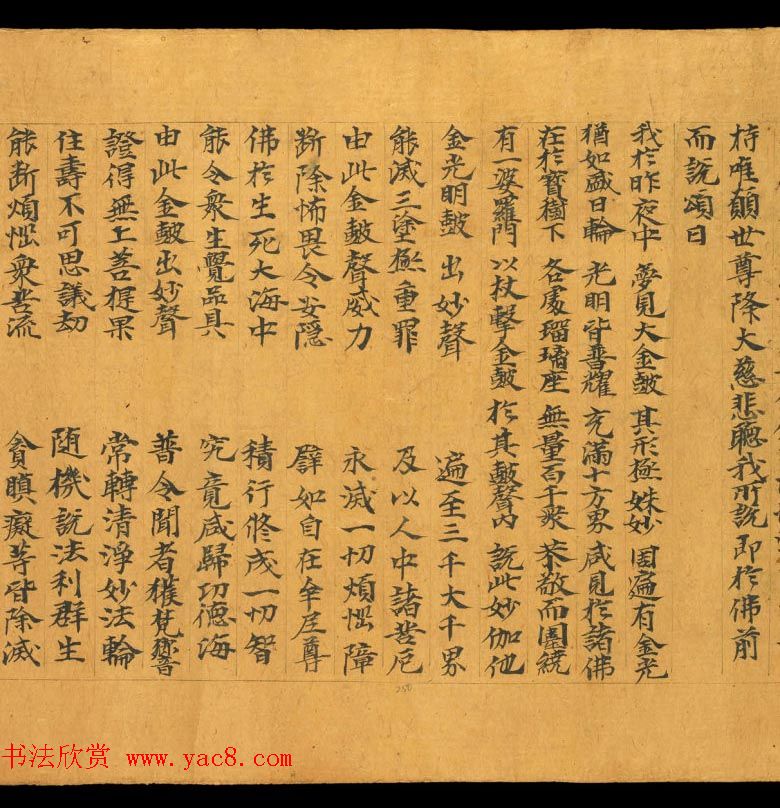 持唯願世尊降大慈悲聽我所說即於佛前
而說頌曰
我於昨夜中 夢見大金皷 其形極姝妙 周遍有金光
猶如盛日輪 光明皆普耀 充滿十方界 咸見於諸佛
在於寶樹下 各處瑠璃座 無量百千眾 恭敬而圍繞
有一婆羅門 以杖擊金皷 於其皷聲內 說此妙伽他
金光明皷出妙聲 遍至三千大千界
能滅三塗極重罪 及以人中諸苦厄
由此金皷聲威力 永滅一切煩惱障
斷除怖畏令安隱 譬如自在牟尼尊
佛於生死大海中 積行修成一切智
能令眾生覺品具 究竟咸歸功德海
由此金皷出妙聲 普令聞者獲梵響
證得無上菩提果 常轉清淨妙法輪
住壽不可思議劫 随機說法利群生
能斷煩惱眾苦流 貪瞋癡等皆除滅
250
书法欣赏 www.yac8.com